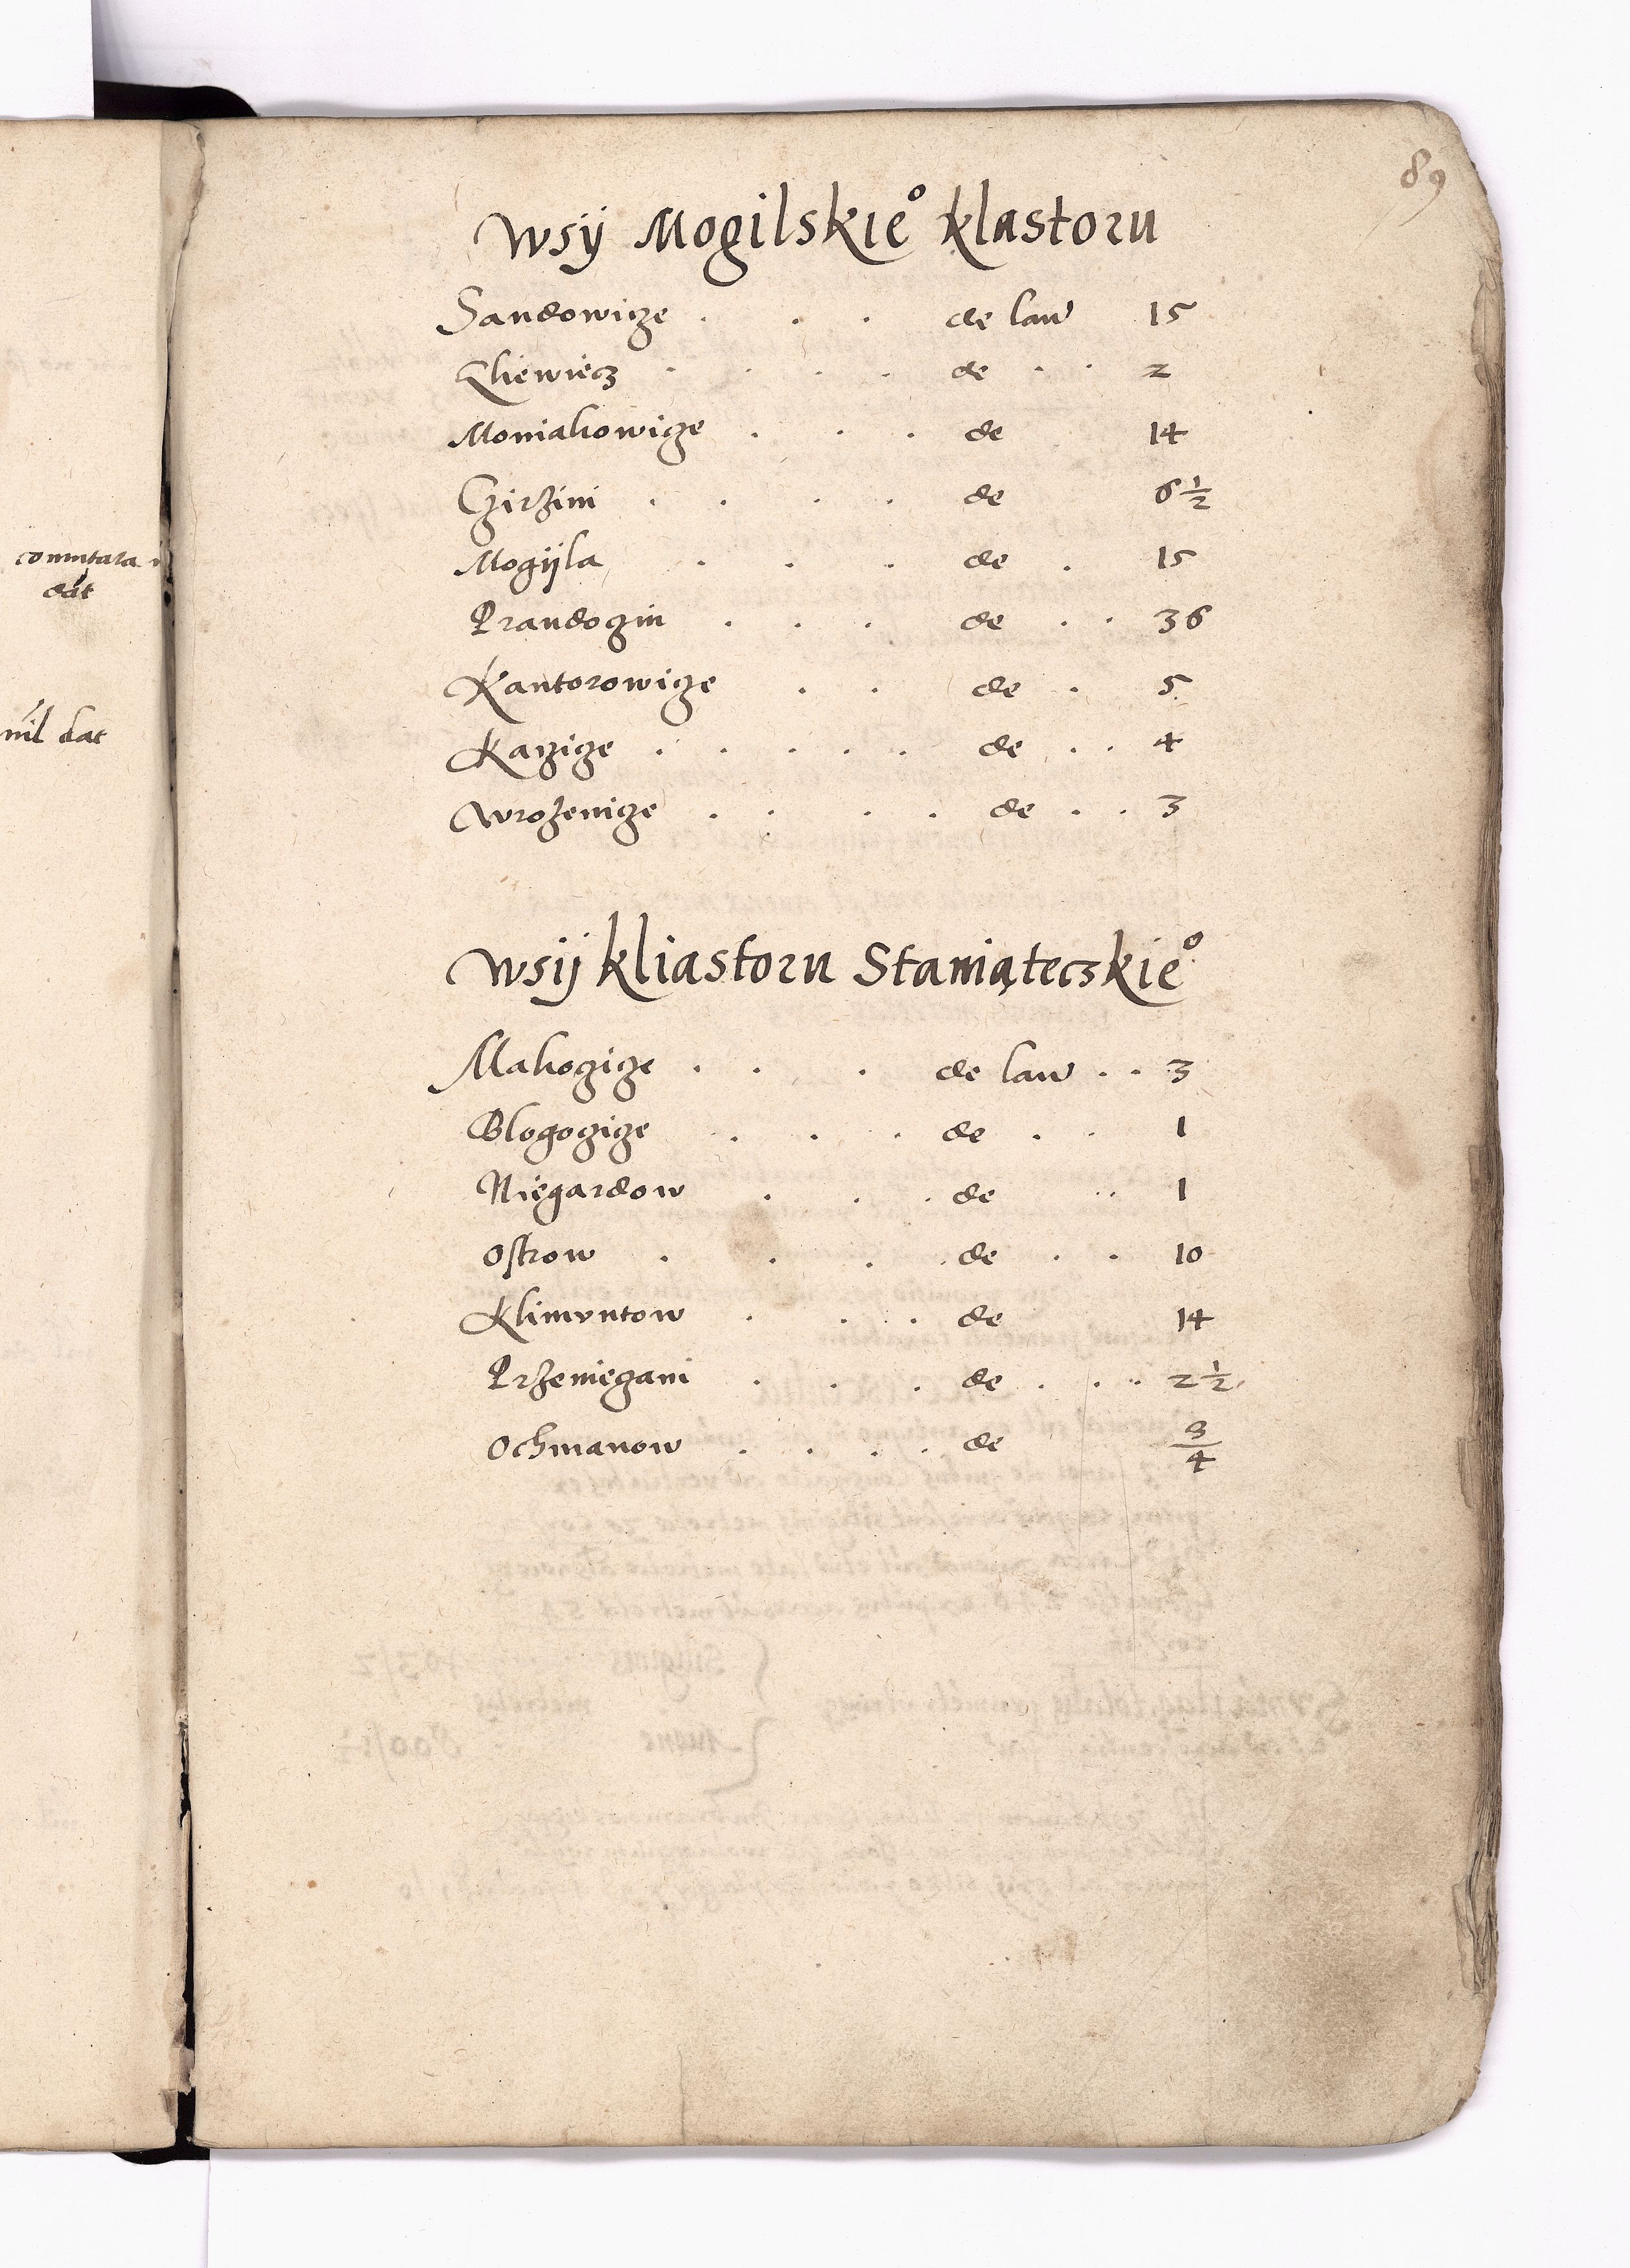 89
Wsÿ Mogilskie° klastoru
Sandowicze . . . de lan 15
Chiewiecz . . . . de . . 2
Moniakowicze . . . de 14
Czirzini . . . . de 6 1/2
Mogÿla . . . de . 15
Prandoczin . . . de . . 36
Kantorowicze . . de . 5
Kaczicze . . . . . de . . 4
Wrozenicze . . . . de . . 3
Wsÿ kliastoru Staniąteczkie°
Makoczicze . . . de lan . . 3
Blogoczicze . . . de . . 1
Niegardow . . . de .. 1
Ostrow . . . . de . . 10
Klimuntow . . . de 14
Przeniegani . . . de . . .. 2 1/2
Ochmanow . . . . de 3/4
commutata
dat
nil dat